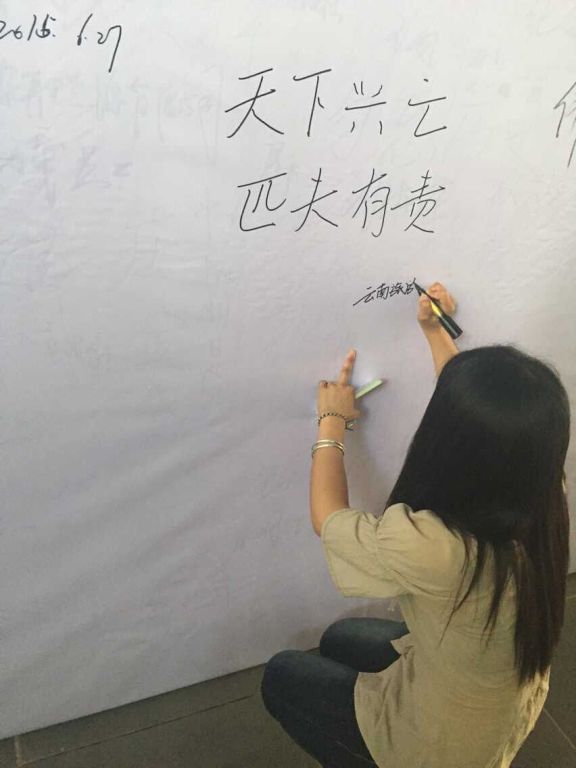 2015. 6.27
天下兴亡
匹夫有责
云南